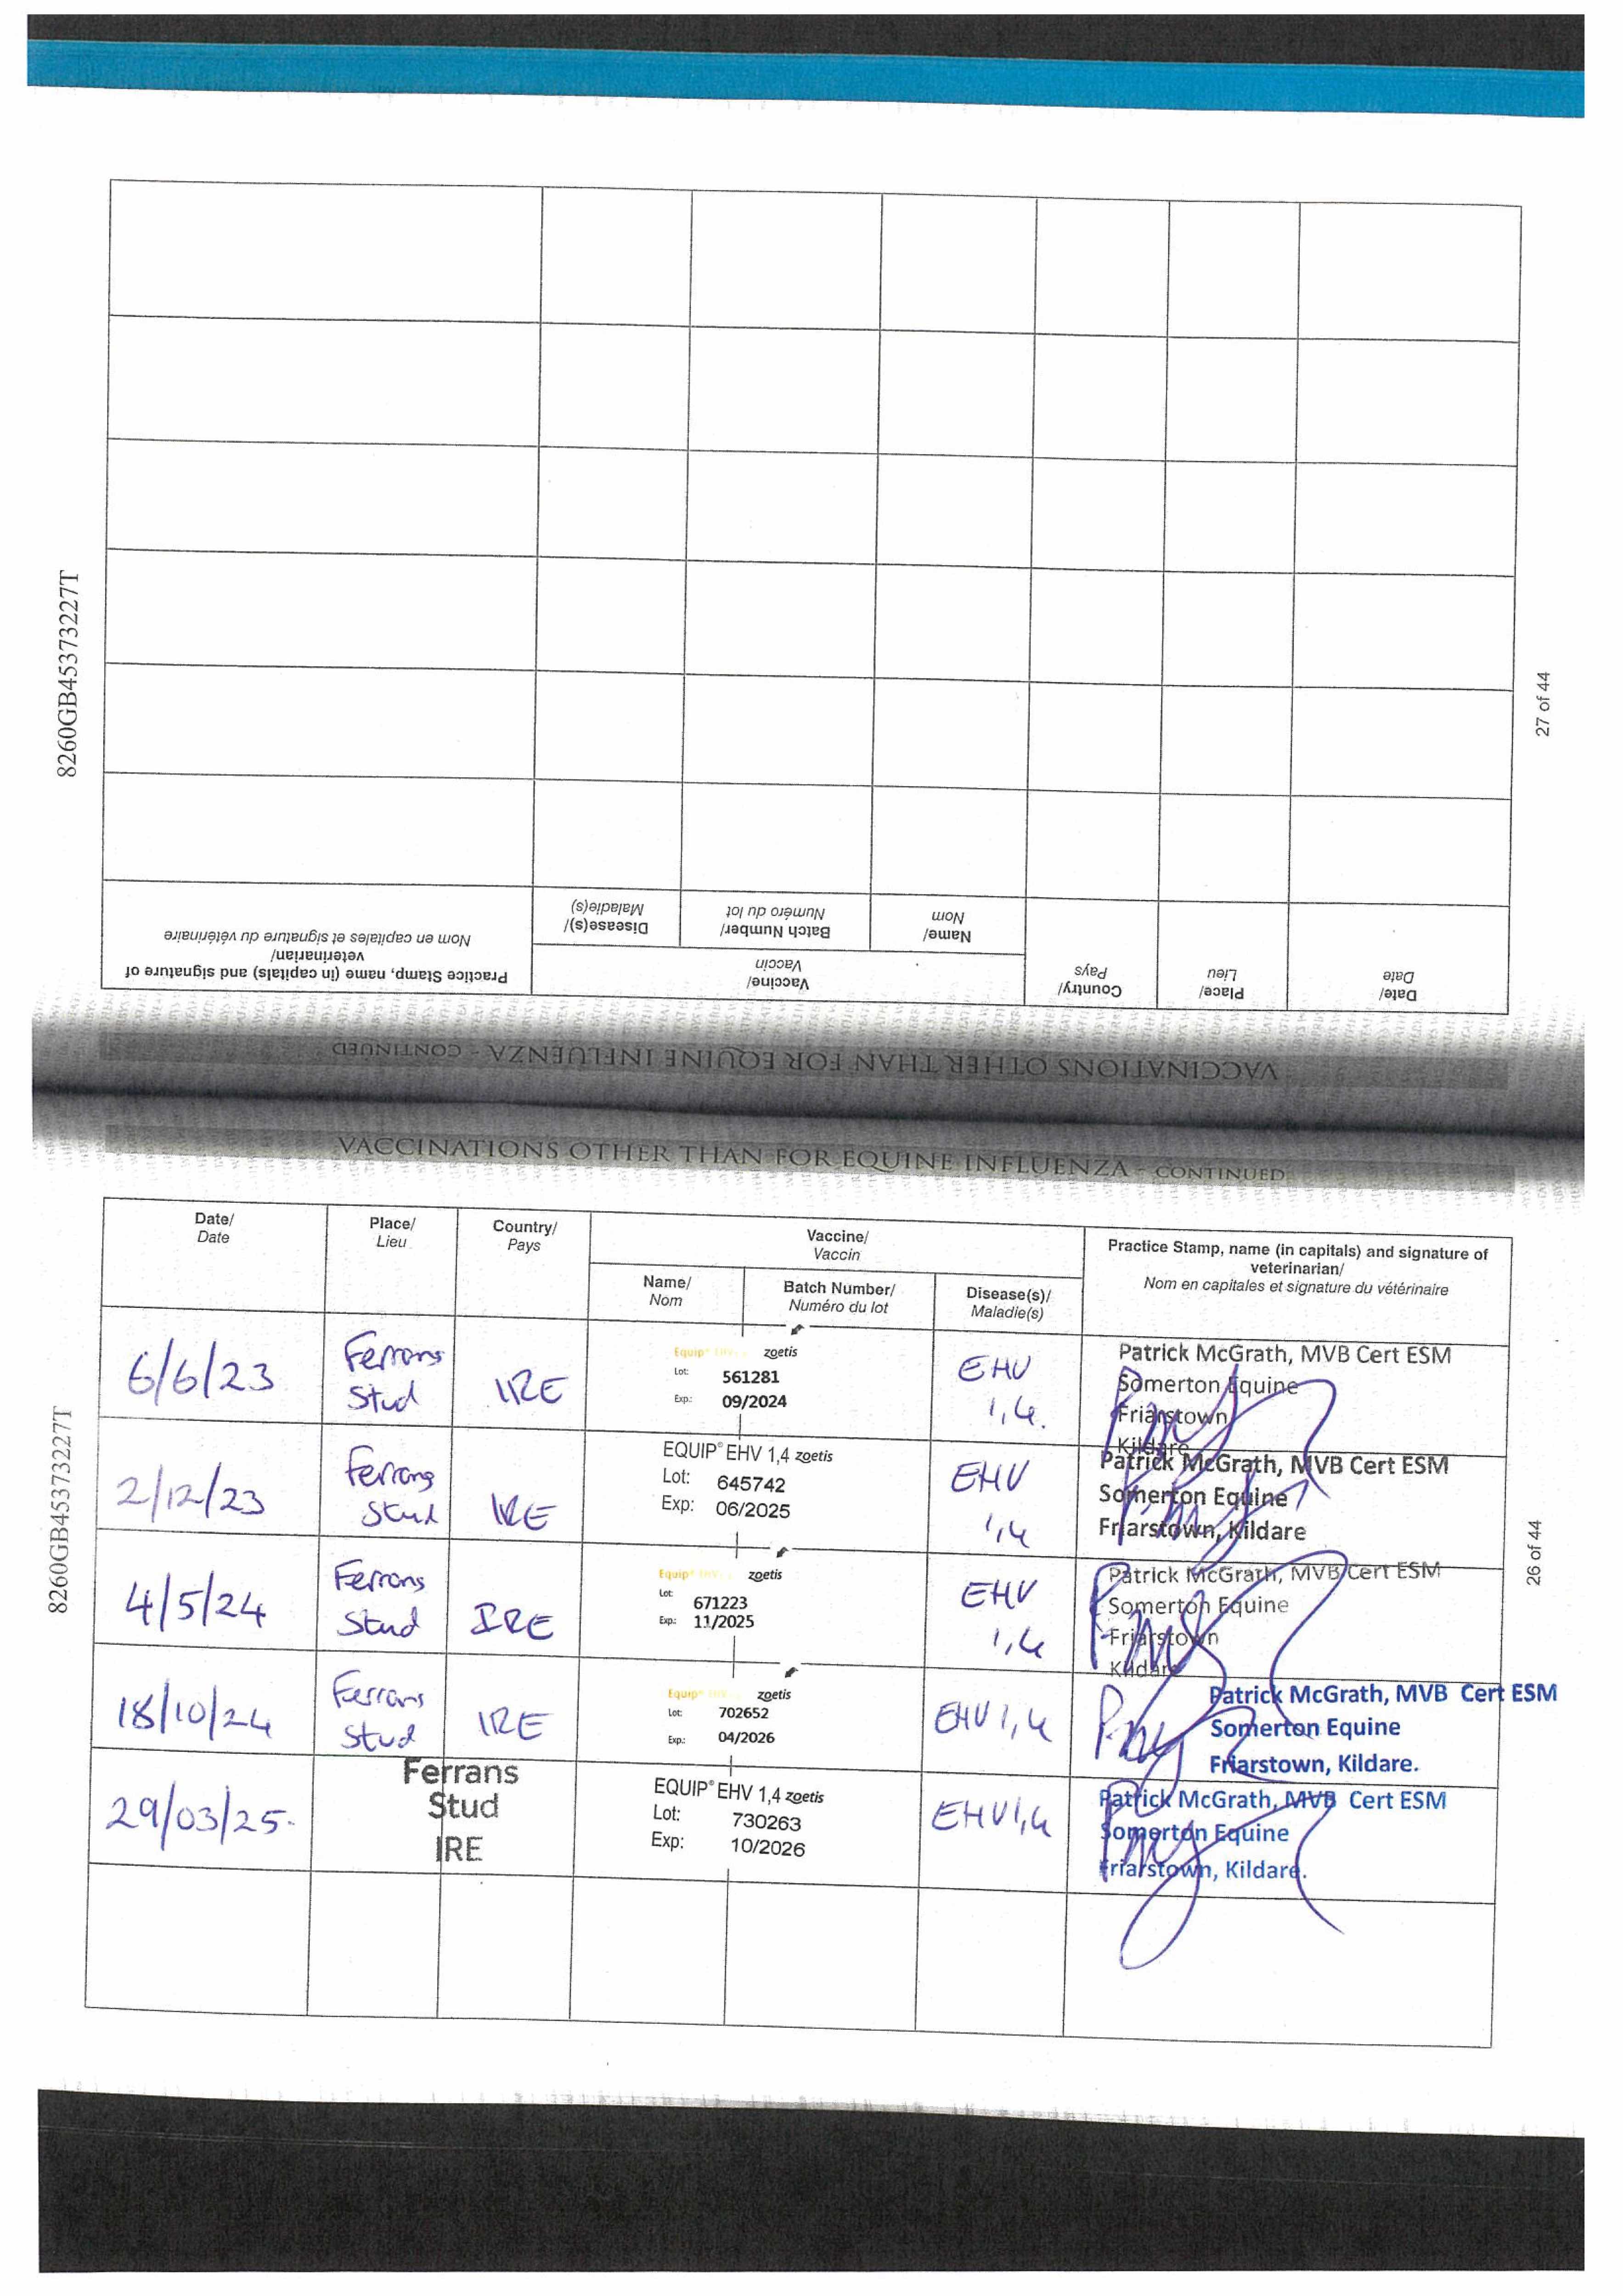 8260GB453732227T
27 of 44
Practice Stamp, name (in capitals) and signature of
veterinarian/
Nom en capitales et signature du vétérinaire
Vaccine/
Vaccin
Disease(s)/
Maladie(s)
Batch Number/
Numéro du lot
Name/
Nom
Country/
Pays
Place/
Lieu
Date/
Date
VACCINATIONS OTHER THAN FOR EQUINE INFLUENZA - CONTINUED
VACCINATIONS OTHER THAN FOR EQUINE INFLUENZA - CONTINUED
Date/
Date
Place/
Lieu
Country/
Pays
Vaccine/
Vaccin
Name/
Nom
Batch Number/
Numéro du lot
Disease(s)/
Maladie(s)
Practice Stamp, name (in capitals) and signature of
veterinarian/
Nom en capitales et signature du vétérinaire
6/6/23
Ferrans
Stud
IRE
Equip® zoetis
Lot: 561281
Exp.: 09/2024
EHV
1,4.
Patrick McGrath, MVB Cert ESM
Somerton Equine
Friarstown
Kildare
2/12/23
Ferrans
Stud
IRE
EQUIP® EHV 1,4 zoetis
Lot: 645742
Exp: 06/2025
EHV
1,4
Patrick McGrath, MVB Cert ESM
Somerton Equine
Friarstown, Kildare
4/5/24
Ferrans
Stud
IRE
Equip® zoetis
Lot: 671223
Exp.: 11/2025
EHV
1,4
Patrick McGrath, MVB Cert ESM
Somerton Equine
Friarstown
Kildare
18/10/24
Ferrans
Stud
IRE
Equip® zoetis
Lot: 702652
Exp.: 04/2026
EHV 1,4
Patrick McGrath, MVB Cert ESM
Somerton Equine
Friarstown, Kildare.
29/03/25.
Ferrans
Stud
IRE
EQUIP® EHV 1,4 zoetis
Lot: 730263
Exp: 10/2026
EHV1,4
Patrick McGrath, MVB Cert ESM
Somerton Equine
Friarstown, Kildare.
8260GB453732227T
26 of 44